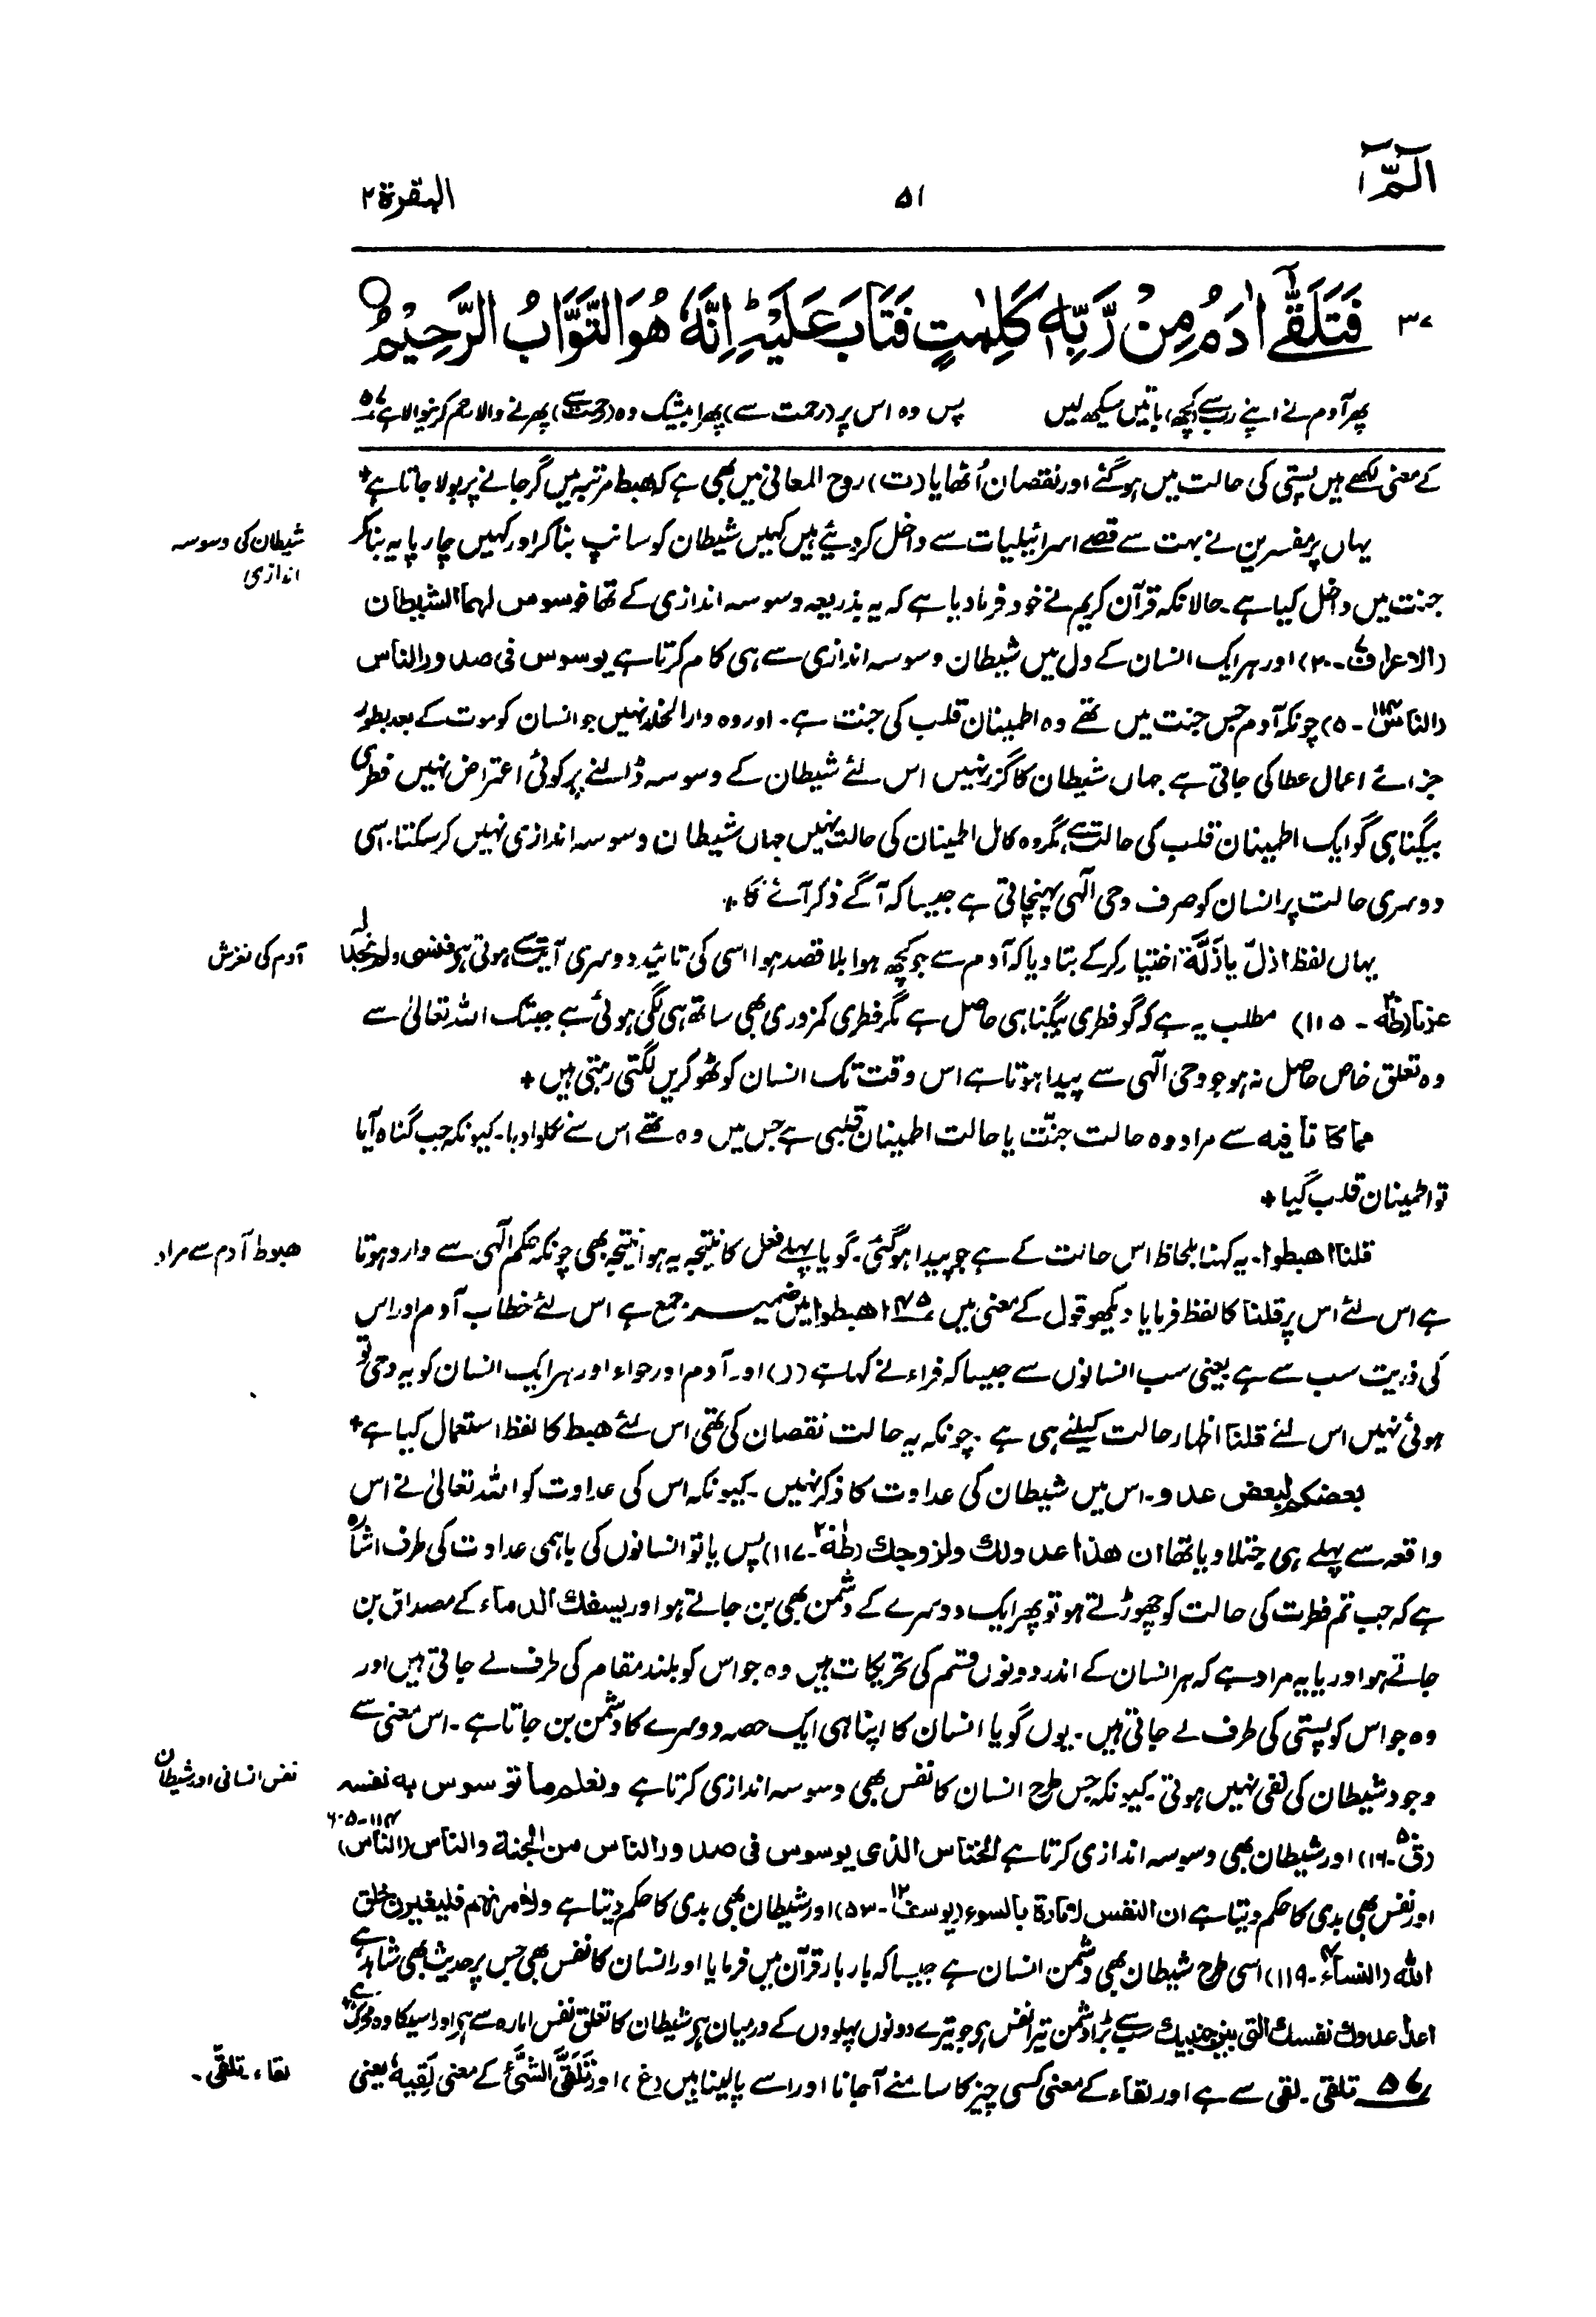 الٓمّٓ ١
۵۱
البقرة ۲
۳۷
فَتَلَقّٰٓى اٰدَمُ مِنْ رَّبِّهٖ كَلِمٰتٍ فَتَابَ عَلَيْهِ ؕ اِنَّهٗ هُوَ التَّوَّابُ الرَّحِيْمُ ○
پھر آدم نے اپنے رب سے (کچھ) باتیں سیکھ لیں
پس وہ اس پر (رحمت سے) پھرا بیشک وہ (رحمت سے) پھرنے والا رحم کرنیوالا ہے ۵۷
کے معنی لکھے ہیں پستی کی حالت میں ہو گئے اور نقصان اُٹھایا (ت) روح المعانی میں بھی ہے کہ ھبط مرتبہ میں گر جانے پر بولا جاتا ہے +
یہاں پر مفسرین نے بہت سے قصے اسرائیلیات سے داخل کر دیئے ہیں کہیں شیطان کو سانپ بنا کر اور کہیں چارپایہ بنا کر
شیطان کی وسوسہ
اندازی
جنت میں داخل کیا ہے۔ حالانکہ قرآن کریم نے خود فرما دیا ہے کہ یہ بذریعہ وسوسہ اندازی کے تھا فوسوس لهما الشیطان
(الاعراف ۷ - ۲۰) اور ہر ایک انسان کے دل میں شیطان وسوسہ اندازی سے ہی کام کرتا ہے یوسوس فی صدور الناس
(الناس ۱۱۴ - ۵) چونکہ آدم جس جنت میں تھے وہ اطمینان قلب کی جنت ہے۔ اور وہ دار الخلد نہیں جو انسان کو موت کے بعد بطور
جزائے اعمال عطا کی جاتی ہے جہاں شیطان کا گزر نہیں اس لئے شیطان کے وسوسہ ڈالنے پر کوئی اعتراض نہیں فطری
بیگناہی گو ایک اطمینان قلب کی حالت ہے، مگر وہ کامل اطمینان کی حالت نہیں جہاں شیطان وسوسہ اندازی نہیں کر سکتا۔ اسی
دوسری حالت پر انسان کو صرف وحی الٰہی پہنچاتی ہے جیسا کہ آگے ذکر آئے گا +
یہاں لفظ ازلّ یا زَلَّة اختیار کر کے بتا دیا کہ آدم سے جو کچھ ہوا بلا قصد ہوا اسی کی تائید دوسری آیت سے ہوتی ہے فنسی ولم نجد له
آدم کی لغزش
عزما (طٰهٰ ۲۰ - ۱۱۵) مطلب یہ ہے کہ گو فطری بیگناہی حاصل ہے مگر فطری کمزوری بھی ساتھ ہی لگی ہوئی ہے جبتک اللہ تعالیٰ سے
وہ تعلق خاص حاصل نہ ہو جو وحی الٰہی سے پیدا ہوتا ہے اس وقت تک انسان کو ٹھوکریں لگتی رہتی ہیں +
مما کانا فیه سے مراد وہ حالت جنّت یا حالت اطمینان قلبی ہے جس میں وہ تھے اس سے نکلوا دیا۔ کیونکہ جب گناہ آیا
تو اطمینان قلب گیا +
قلنا اھبطوا۔ یہ کہنا بلحاظ اس حالت کے ہے جو پیدا ہو گئی۔ گویا پہلے فعل کا نتیجہ یہ ہوا نتیجہ بھی چونکہ حکم الٰہی سے وارد ہوتا
ھبوط آدم سے مراد
ہے اس لئے اس پر قلنا کا لفظ فرمایا دیکھو قول کے معنی میں ۴۵ اھبطوا میں ضمیر جمع ہے اس لئے خطاب آدم اور اس
کی ذریت سب سے ہے یعنی سب انسانوں سے جیسا کہ فراء نے کہا ہے (ر) اور آدم اور حواء اور ہر ایک انسان کو یہ وحی تو
ہوئی نہیں اس لئے قلنا اظہار حالت کیلئے ہی ہے۔ چونکہ یہ حالت نقصان کی تھی اس لئے ھبط کا لفظ استعمال کیا ہے +
بعضکم لبعض عدو۔ اس میں شیطان کی عداوت کا ذکر نہیں۔ کیونکہ اس کی عداوت کو اللہ تعالیٰ نے اس
واقعہ سے پہلے ہی جتلا دیا تھا ان ھذا عدو لك ولزوجك (طٰهٰ ۲۰ - ۱۱۷) پس یا تو انسانوں کی باہمی عداوت کی طرف اشارہ
ہے کہ جب تم فطرت کی حالت کو چھوڑتے ہو تو پھر ایک دوسرے کے دشمن بھی بن جاتے ہو اور یسفك الدماء کے مصداق بن
جاتے ہو اور یا یہ مراد ہے کہ ہر انسان کے اندر دونوں قسم کی تحریکات ہیں وہ جو اس کو بلند مقام کی طرف لے جاتی ہیں اور
وہ جو اس کو پستی کی طرف لے جاتی ہیں۔ یوں گویا انسان کا اپنا ہی ایک حصہ دوسرے کا دشمن بن جاتا ہے۔ اس معنی سے
وجود شیطان کی نفی نہیں ہوتی۔ کیونکہ جس طرح انسان کا نفس بھی وسوسہ اندازی کرتا ہے ونعلم ما توسوس به نفسه
نفس انسانی اور شیطان
(ق ۵۰ - ۱۶) اور شیطان بھی وسوسہ اندازی کرتا ہے الخناس الذی یوسوس فی صدور الناس من الجنة والناس (الناس ۱۱۴ - ۵، ۶)
اور نفس بھی بدی کا حکم دیتا ہے ان النفس لامارة بالسوء (یوسف ۱۲ - ۵۳) اور شیطان بھی بدی کا حکم دیتا ہے ولامرنهم فلیغیرن خلق
الله (النساء ۴ - ۱۱۹) اسی طرح شیطان بھی دشمن انسان ہے جیسا کہ بار بار قرآن میں فرمایا اور انسان کا نفس بھی جس پر حدیث بھی شاہد ہے
اعدٰ عدوك نفسك التی بین جنبیك سب سے بڑا دشمن تیرا نفس ہے جو تیرے دونوں پہلووں کے درمیان ہے شیطان کا تعلق نفس امارہ سے ہے اور اسیکا وہ محرک ہے +
۵۷ تلقی۔ لقی سے ہے اور لقاء کے معنی کسی چیز کا سامنے آجانا اور اسے پا لینا ہیں (غ) اور تَلَقَّى الشَّئَ کے معنی لَقِیَهٗ یعنی
لقاء۔ تلقّی۔